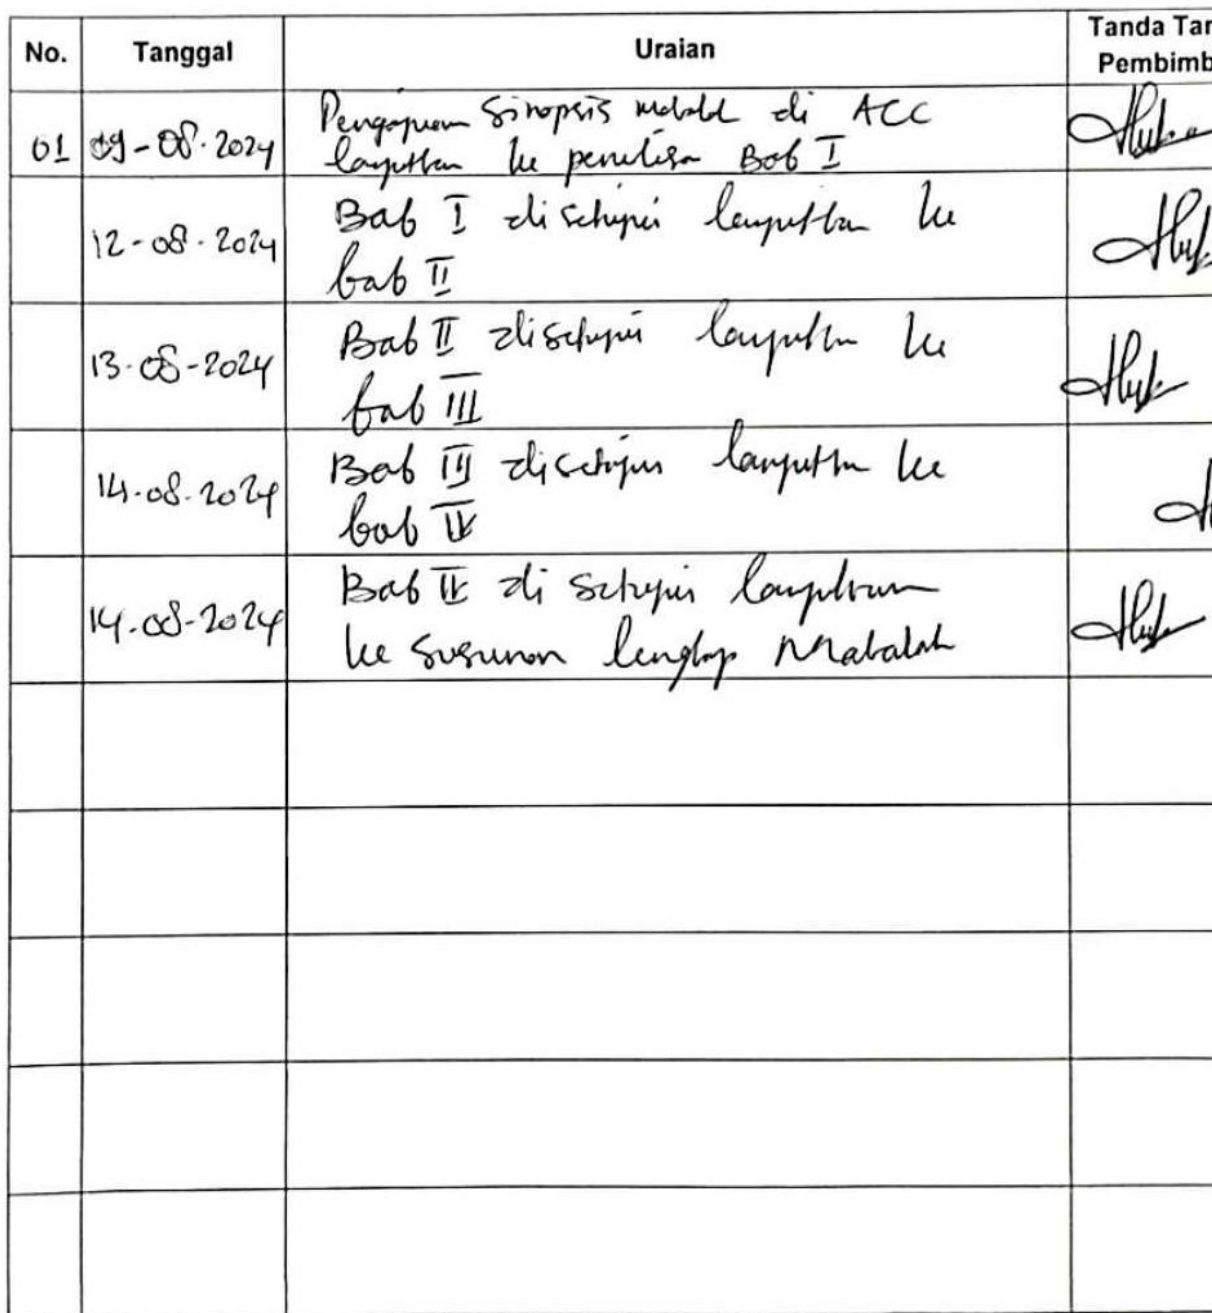 No. Tanggal Uraian Tanda Tan
Pembimb
01 09-08-2024 Pengajuan Sinopsis makalah di ACC
lanjutkan ke penulisan Bab I
12-08-2024 Bab I disetujui lanjutkan ke
bab II
13-08-2024 Bab II disetujui lanjutkan ke
bab III
14-08-2024 Bab III disetujui lanjutkan ke
bab IV
14-08-2024 Bab IV di setujui lanjutkan
ke susunan lengkap Makalah